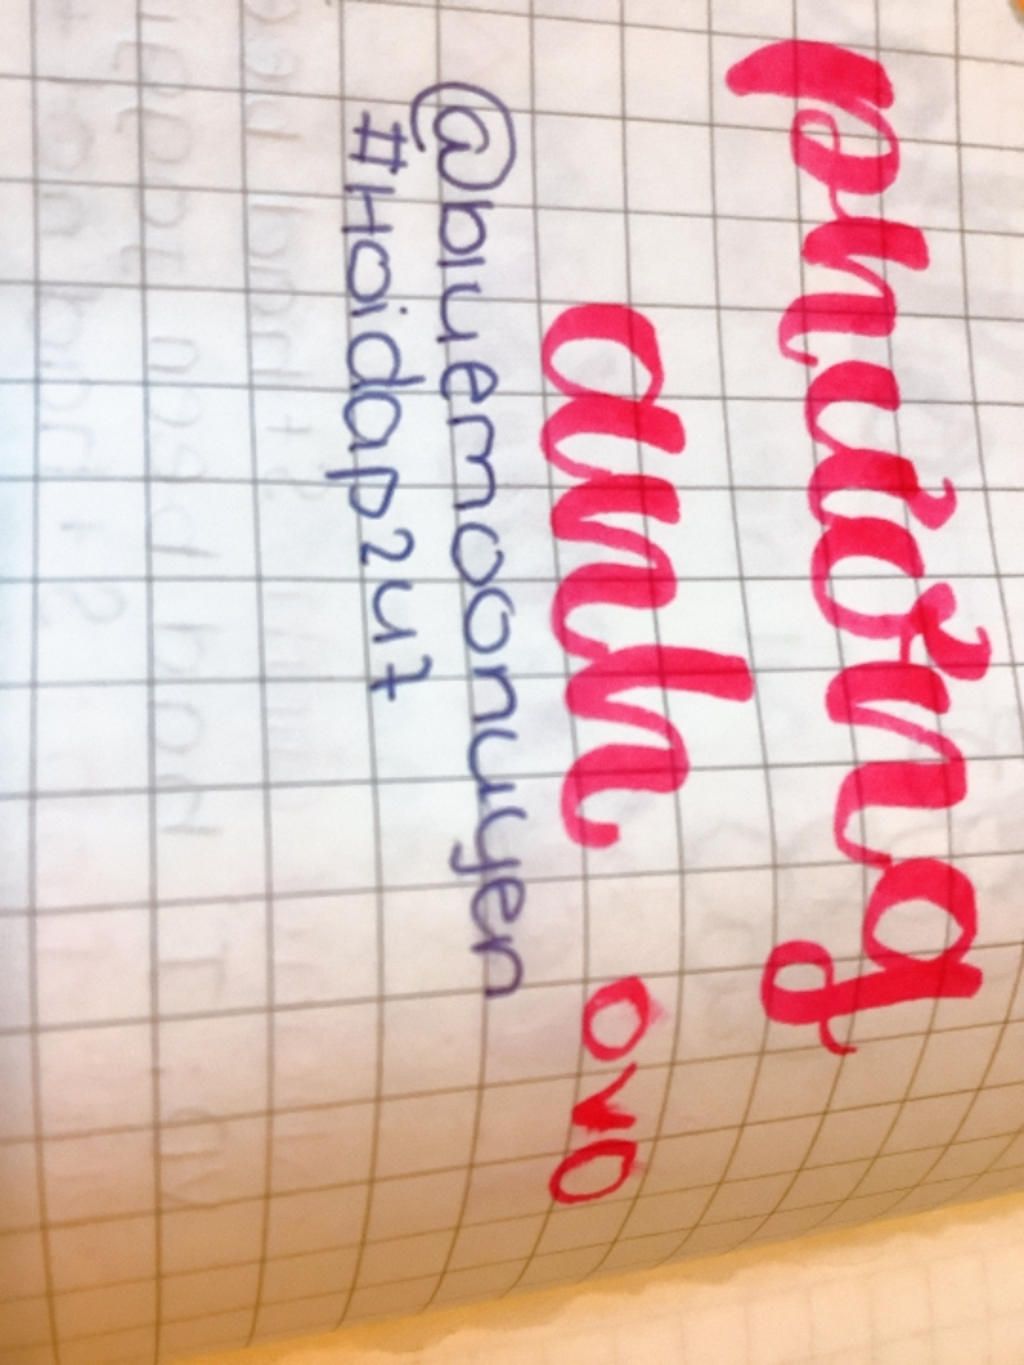 phương
anh ovo
@bluemoonuyen
#Hoidap247